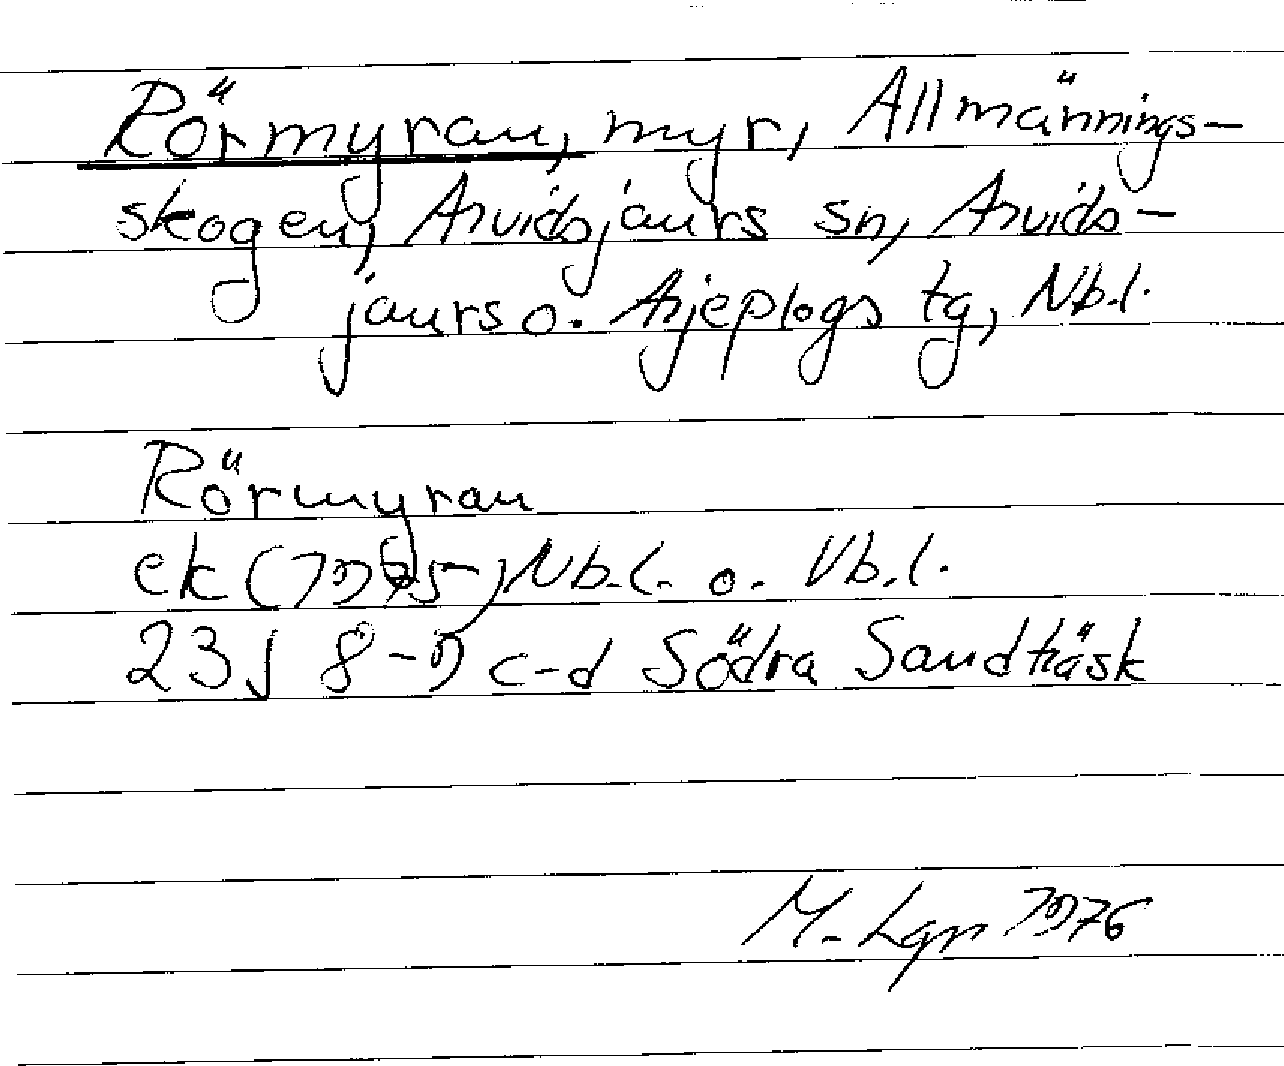 Rörmyran, myr, Allmännings-
skogen, Arvidsjaurs sn, Arvids-
jaurs o. Arjeplogs tg, Nb.l.
Rörmyran
ek (1965) Nb.l. o. Vb.l.
23J 8-9 c-d Södra Sandträsk
M. Lgn 1976